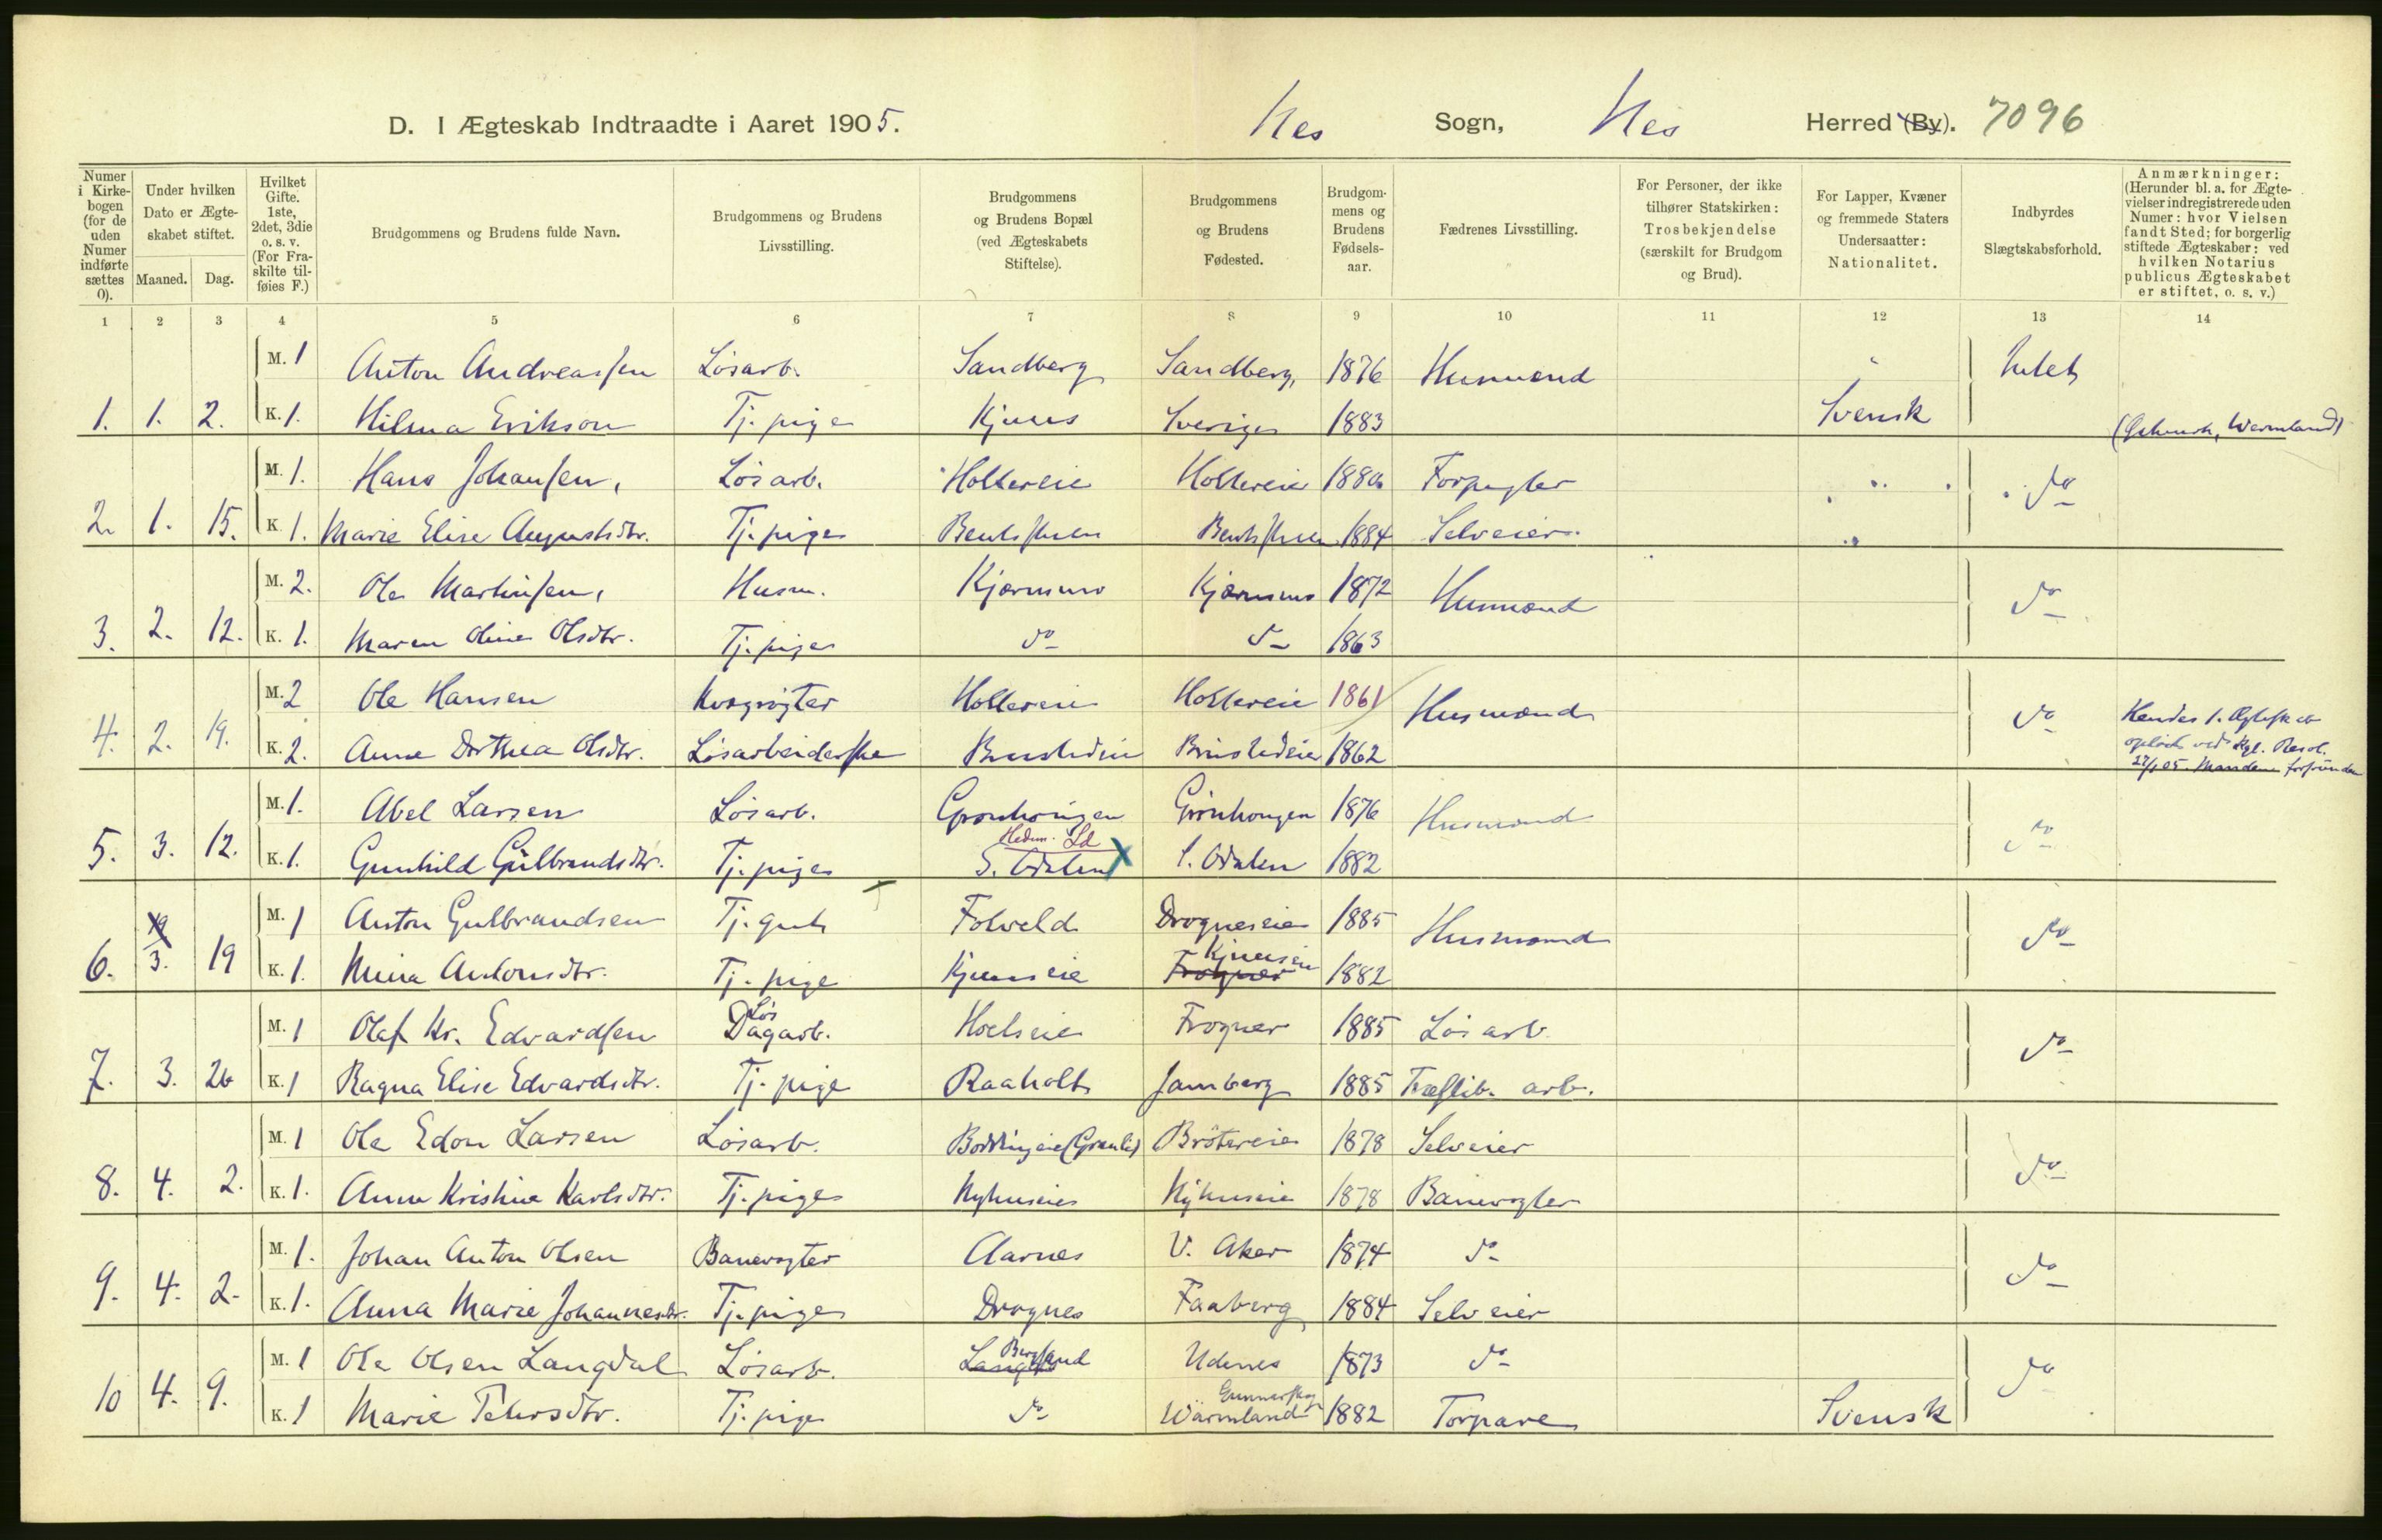 D. I Ægteskab Indtraadte i Aaret 1905. Nes Sogn, Nes Herred (By). 7096
Numer i Kirkebogen (for de uden Numer indførte sættes 0).
Under hvilken Dato er Ægteskabet stiftet. Maaned. Dag.
Hvilket Gifte. 1ste, 2det, 3die o. s. v. (For Fraskilte tilføies F.)
Brudgommens og Brudens fulde Navn.
Brudgommens og Brudens Livsstilling.
Brudgommens og Brudens Bopæl (ved Ægteskabets Stiftelse).
Brudgommens og Brudens Fødested.
Brudgommens og Brudens Fødselsaar.
Fædrenes Livsstilling.
For Personer, der ikke tilhører Statskirken: Trosbekjendelse (særskilt for Brudgom og Brud).
For Lapper, Kvæner og fremmede Staters Undersaatter: Nationalitet.
Indbyrdes Slægtskabsforhold.
Anmærkninger: (Herunder bl. a. for Ægtevielser indregistrerede uden Numer: hvor Vielsen fandt Sted; for borgerlig stiftede Ægteskaber: ved hvilken Notarius publicus Ægteskabet er stiftet, o. s. v.)
1 2 3 4 5 6 7 8 9 10 11 12 13 14
M. 1 Anton Andreassen Løsarb. Sandberg Sandberg, 1876 Husmænd Intet
1. 1. 2. K. 1. Hilma Erikson Tj. pige Kjuus Sverige 1883 Svensk Wermland)
M. 1. Hans Johansen, Løsarb. Holtereie Holtereie 1880 Forpagter do
2. 1. 15. K. 1. Marie Elise Augustsdtr. Tj. pige 1884 Selveier
M. 2. Ole Martinsen, Husm. Kjærnmo Kjærnmo 1872 Husmænd do
3. 2. 12. K. 1. Maren Oline Olsdtr. Tj. pige do do 1863
M. 2 Ole Hansen Kvægrøgter Holtereie Holtereie 1861 Husmænd do Hendes 1. Ægteskab
4. 2. 19. K. 2. Anne Dorthea Olsdtr. Løsarbeiderske 1862 opløst ved Kgl. Resol.
27/1 05. Manden forsvunden
M. 1. Abel Larsen Løsarb. Grønhougen Grønhougen 1876 Husmænd do
Hedm. Ld
5. 3. 12. K. 1. Gunhild Gulbrandsdtr. Tj. pige S. Odalen X S. Odalen 1882
M. 1 Anton Gulbrandsen Tj. gut Folveld Drogneseie 1885 Husmænd do
6. 3. 19 K. 1. Mina Antonsdtr. Tj. pige Kjuuseie Frogner Kjuuseie 1882
M. 1 Olaf Kr. Edvardsen Dagarb. Løs Hoelseie Frogner 1885 Løsarb. do
7. 3. 26 K. 1 Ragna Elise Edvardsdtr. Tj. pige Raaholt Jamberg 1885 Træslib. arb.
M. 1 Ole Edon Larsen Løsarb. Bröttereie 1878 Selveier do
8. 4. 2. K. 1. Anne Kristine Karlsdtr. Tj. pige Nyhuseie Nyhuseie 1878 Banevogter
M. 1. Johan Anton Olsen Banevogter Aarnes V. Aker 1874 do do
9. 4. 2. K. 1. Anna Marie Johannesdtr. Tj. pige Drognes Faaberg 1884 Selveier
M. 1 Ole Olsen Langdal Løsarb. Bergsund Udenes 1873 do do
10 4. 9. K. 1 Marie Petersdtr. Tj. pige do Gunnarskog Wärmland 1882 Torpare Svensk